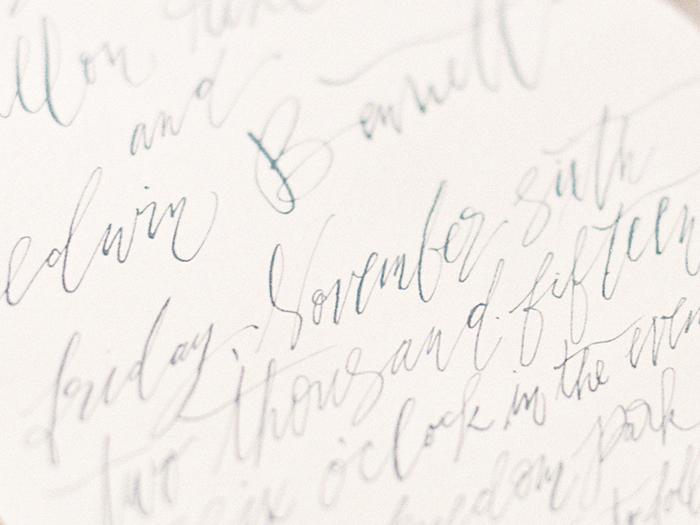 and
edwin Bennett
friday, November sixth
two thousand fifteen
six o'clock in the even
freedom park
to foll